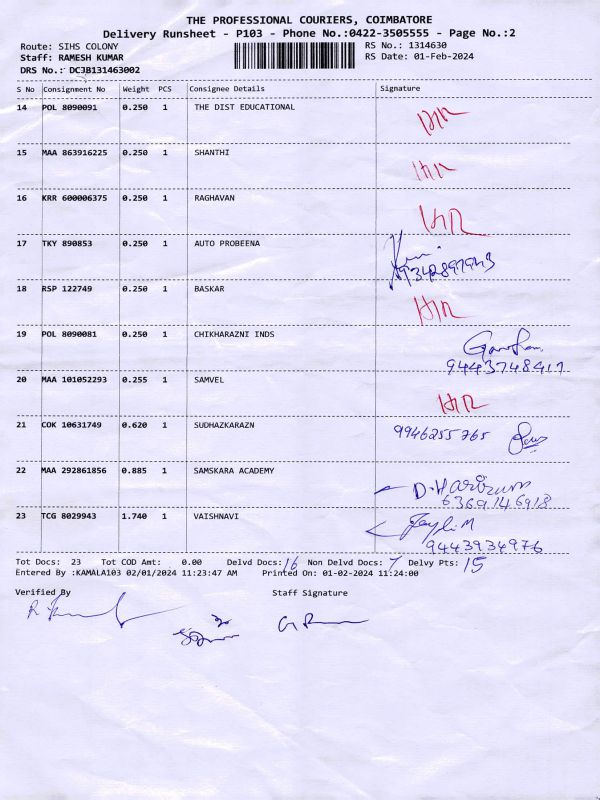 THE PROFESSIONAL COURIERS, COIMBATORE
Delivery Runsheet - P103 - Phone No.:0422-3505555 - Page No.:2
Route: SIHS COLONY RS No.: 1314630
Staff: RAMESH KUMAR RS Date: 01-Feb-2024
DRS No.: DCJB131463002
S No Consignment No Weight PCS Consignee Details Signature
14 POL 8090091 0.250 1 THE DIST EDUCATIONAL
15 MAA 863916225 0.250 1 SHANTHI
16 KRR 600006375 0.250 1 RAGHAVAN
17 TKY 890853 0.250 1 AUTO PROBEENA
9342897943
18 RSP 122749 0.250 1 BASKAR
19 POL 8090081 0.250 1 CHIKHARAZNI INDS
9443748417
20 MAA 101052293 0.255 1 SAMVEL
21 COK 10631749 0.620 1 SUDHAZKARAZN 9946255765
22 MAA 292861856 0.885 1 SAMSKARA ACADEMY
6369146918
23 TCG 8029943 1.740 1 VAISHNAVI
9443934976
Tot Docs: 23 Tot COD Amt: 0.00 Delvd Docs: 16 Non Delvd Docs: 7 Delvy Pts: 15
Entered By :KAMALA103 02/01/2024 11:23:47 AM Printed On: 01-02-2024 11:24:00
Verified By Staff Signature